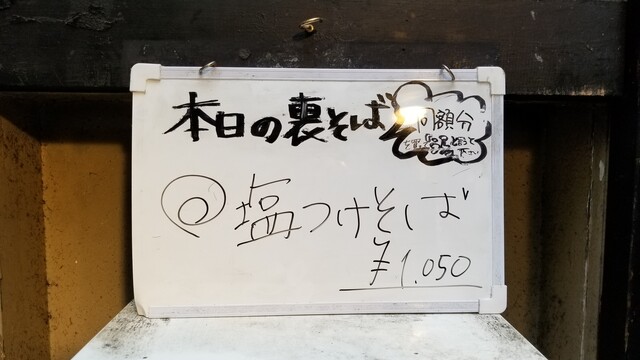 本日の裏そば
同額分
下さい
塩つけそば
¥1.050